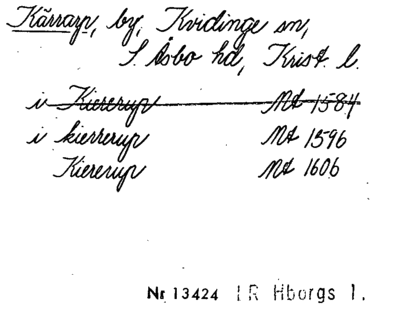 Kärrarp, by, Kvidinge sn,
S. Åsbo hd, Krist. l.
i Kiererup Mt 1584
i kierrerup Mt 1596
Kiererup Mt 1606
Nr 13424 LR Hborgs l.